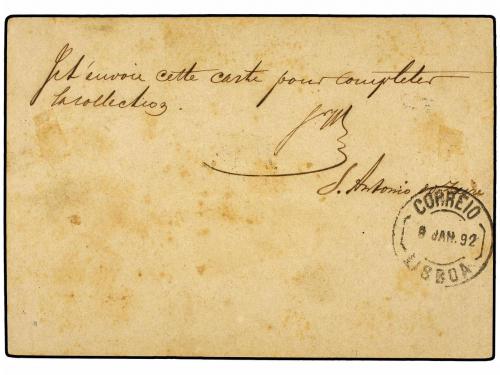 Je t'envoie cette carte pour completer
la collection
S. Antonio do Zaire
CORREIO
8 JAN. 92
LISBOA